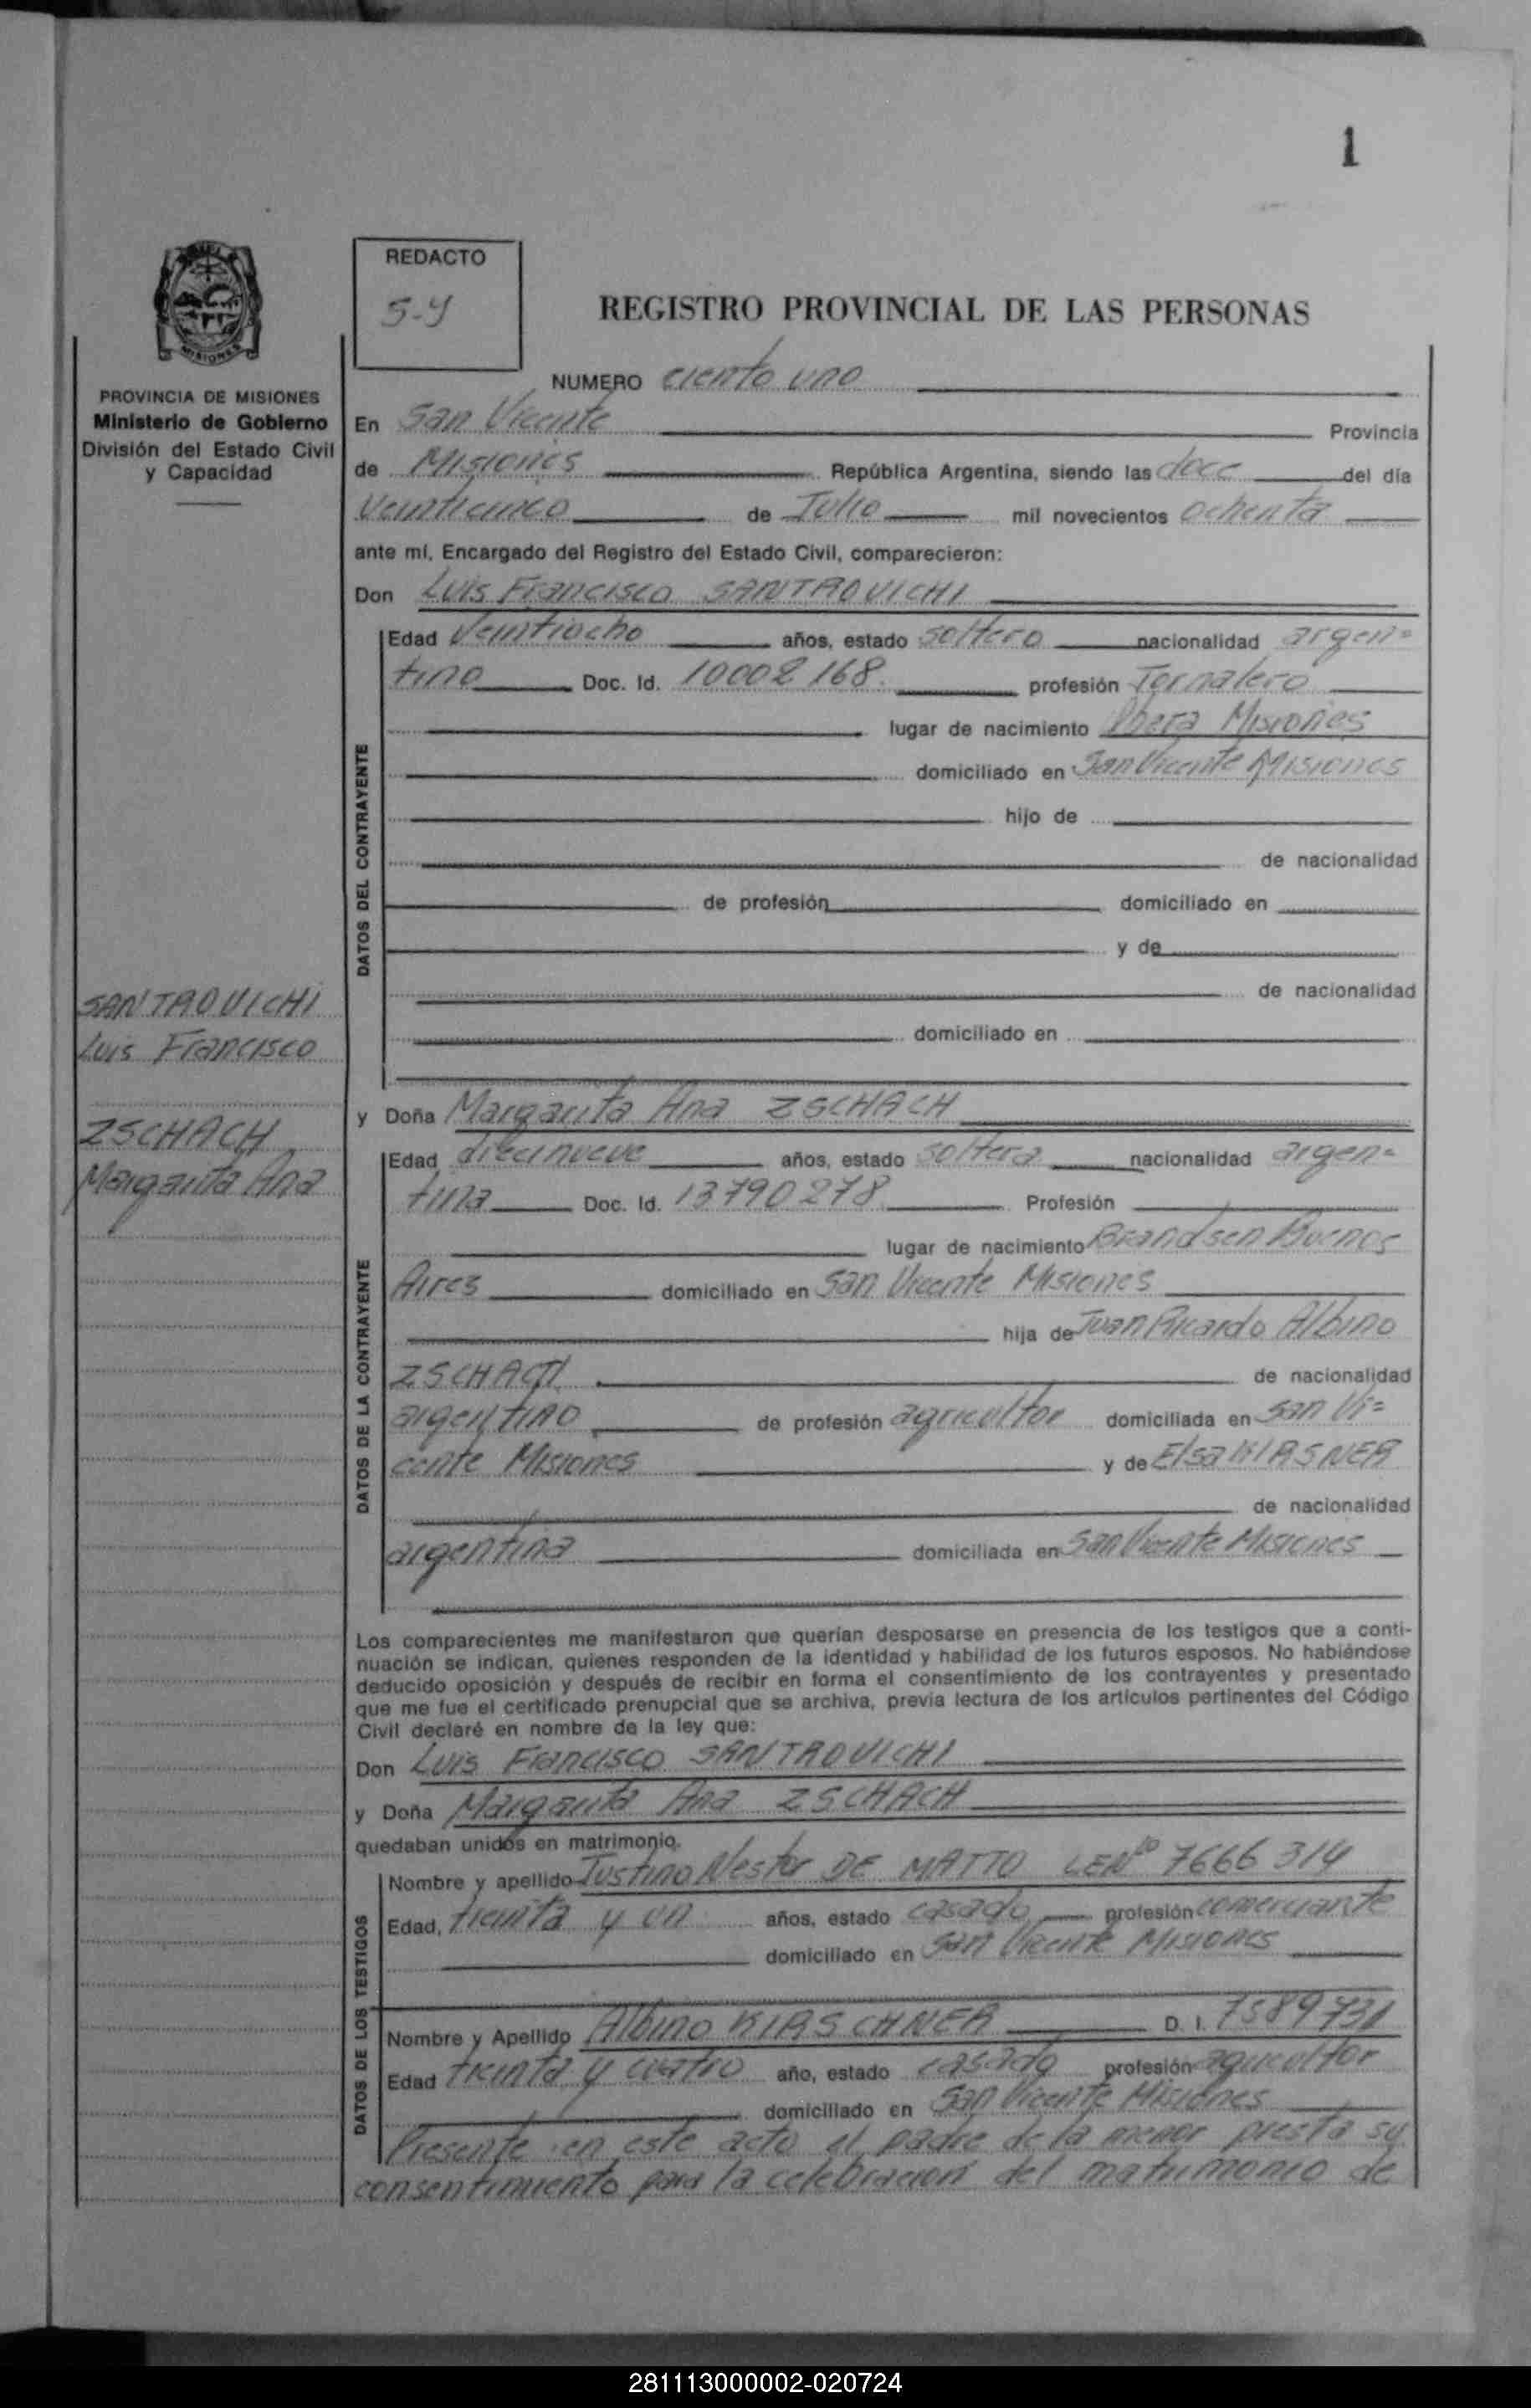 1
REDACTO
S-Y
REGISTRO PROVINCIAL DE LAS PERSONAS
PROVINCIA DE MISIONES
Ministerio de Gobierno
División del Estado Civil
y Capacidad
NUMERO ciento uno
En San Vicente Provincia
de Misiones República Argentina, siendo las doce del día
veinticinco de Julio mil novecientos ochenta
ante mí, Encargado del Registro del Estado Civil, comparecieron:
Don Luis Francisco SANTROVICHI
DATOS DEL CONTRAYENTE
Edad veintiocho años, estado soltero nacionalidad argen=
tino Doc. Id. 10002168. profesión Jornalero
lugar de nacimiento Obera Misiones
domiciliado en San Vicente Misiones
hijo de
de nacionalidad
de profesión domiciliado en
y de
de nacionalidad
domiciliado en
SANTROVICHI
Luis Francisco
ZSCHACH
Margarita Ana
y Doña Margarita Ana ZSCHACH
DATOS DE LA CONTRAYENTE
Edad diecinueve años, estado soltera nacionalidad argen=
tina Doc. Id. 13790278 Profesión
lugar de nacimiento Brandsen Buenos
Aires domiciliado en San Vicente Misiones
hija de Juan Ricardo Albino
ZSCHACH de nacionalidad
argentino de profesión agricultor domiciliada en San Vi=
cente Misiones y de Elsa KIRSNER
de nacionalidad
argentina domiciliada en San Vicente Misiones
Los comparecientes me manifestaron que querían desposarse en presencia de los testigos que a conti-
nuación se indican, quienes responden de la identidad y habilidad de los futuros esposos. No habiéndose
deducido oposición y después de recibir en forma el consentimiento de los contrayentes y presentado
que me fue el certificado prenupcial que se archiva, previa lectura de los artículos pertinentes del Código
Civil declaré en nombre de la ley que:
Don Luis Francisco SANTROVICHI
y Doña Margarita Ana ZSCHACH
quedaban unidos en matrimonio.
DATOS DE LOS TESTIGOS
Nombre y apellido Justino Nestor DE MATTO LENº 7666314
Edad, treinta y un años, estado casado profesión comerciante
domiciliado en San Vicente Misiones
Nombre y Apellido Albino KIRSCHNER D. I. 7589731
Edad treinta y cuatro año, estado casado profesión agricultor
domiciliado en San Vicente Misiones
Presente en este acto el padre de la menor presta su
consentimiento para la celebracion del matrimonio de
281113000002-020724